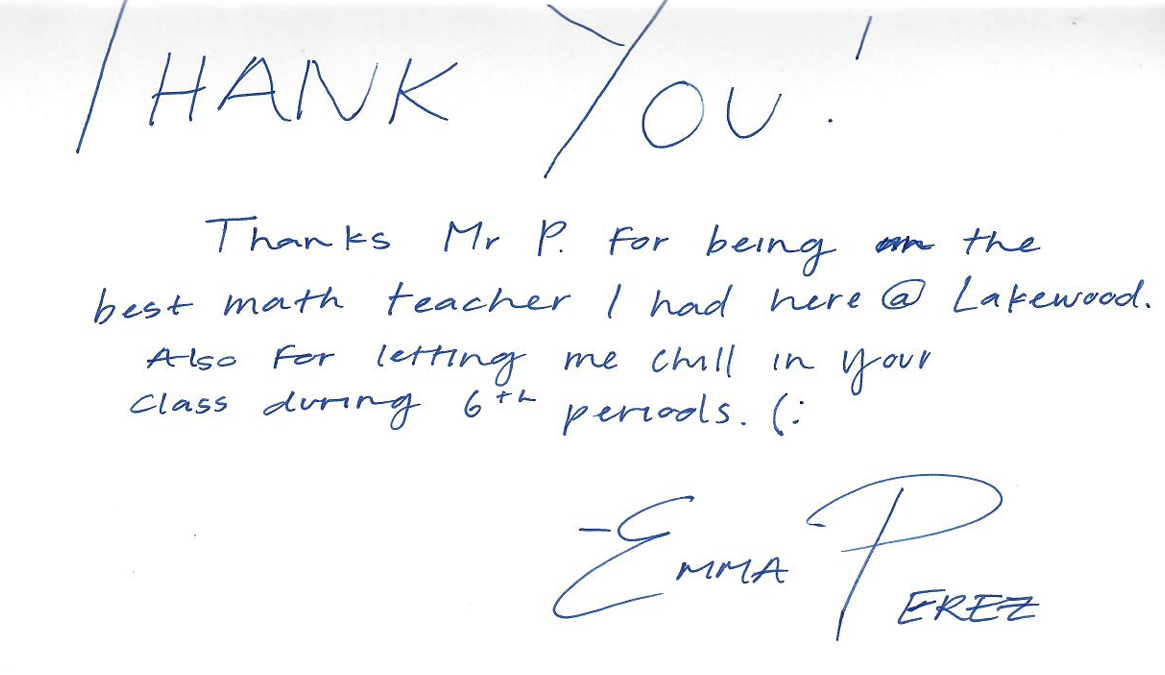 THANK YOU!
Thanks Mr P. for being the
best math teacher I had here @ Lakewood.
Also for letting me chill in your
class during 6th periods. (:
-EMMA PEREZ